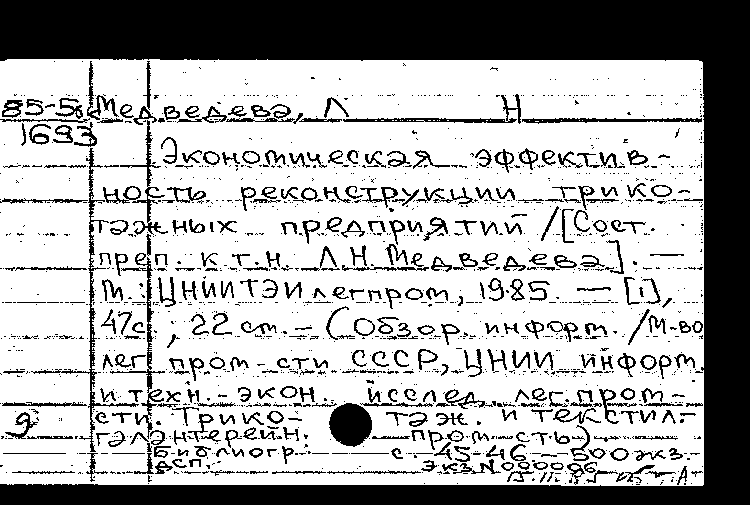 85-5 Медведева, Л Н
1693
Экономическая эффектив-
ность реконструкции трико-
тажных предприятий /[Сост.
преп. к.т.н. Л.Н. Медведева]. —
М.: ЦНИИТЭИлегпром, 1985. — [1],
47с., 22 см. - (Обзор. информ. /М-во
лег. пром-сти СССР, ЦНИИ информ.
и техн.-экон. исслед. лег. пром-
сти. Трикотаж. и текстил.-
9
галантерейн. пром-сть)
Библиогр.: с. 45-46 - 500 экз.
ДСП. Экз. N 000006